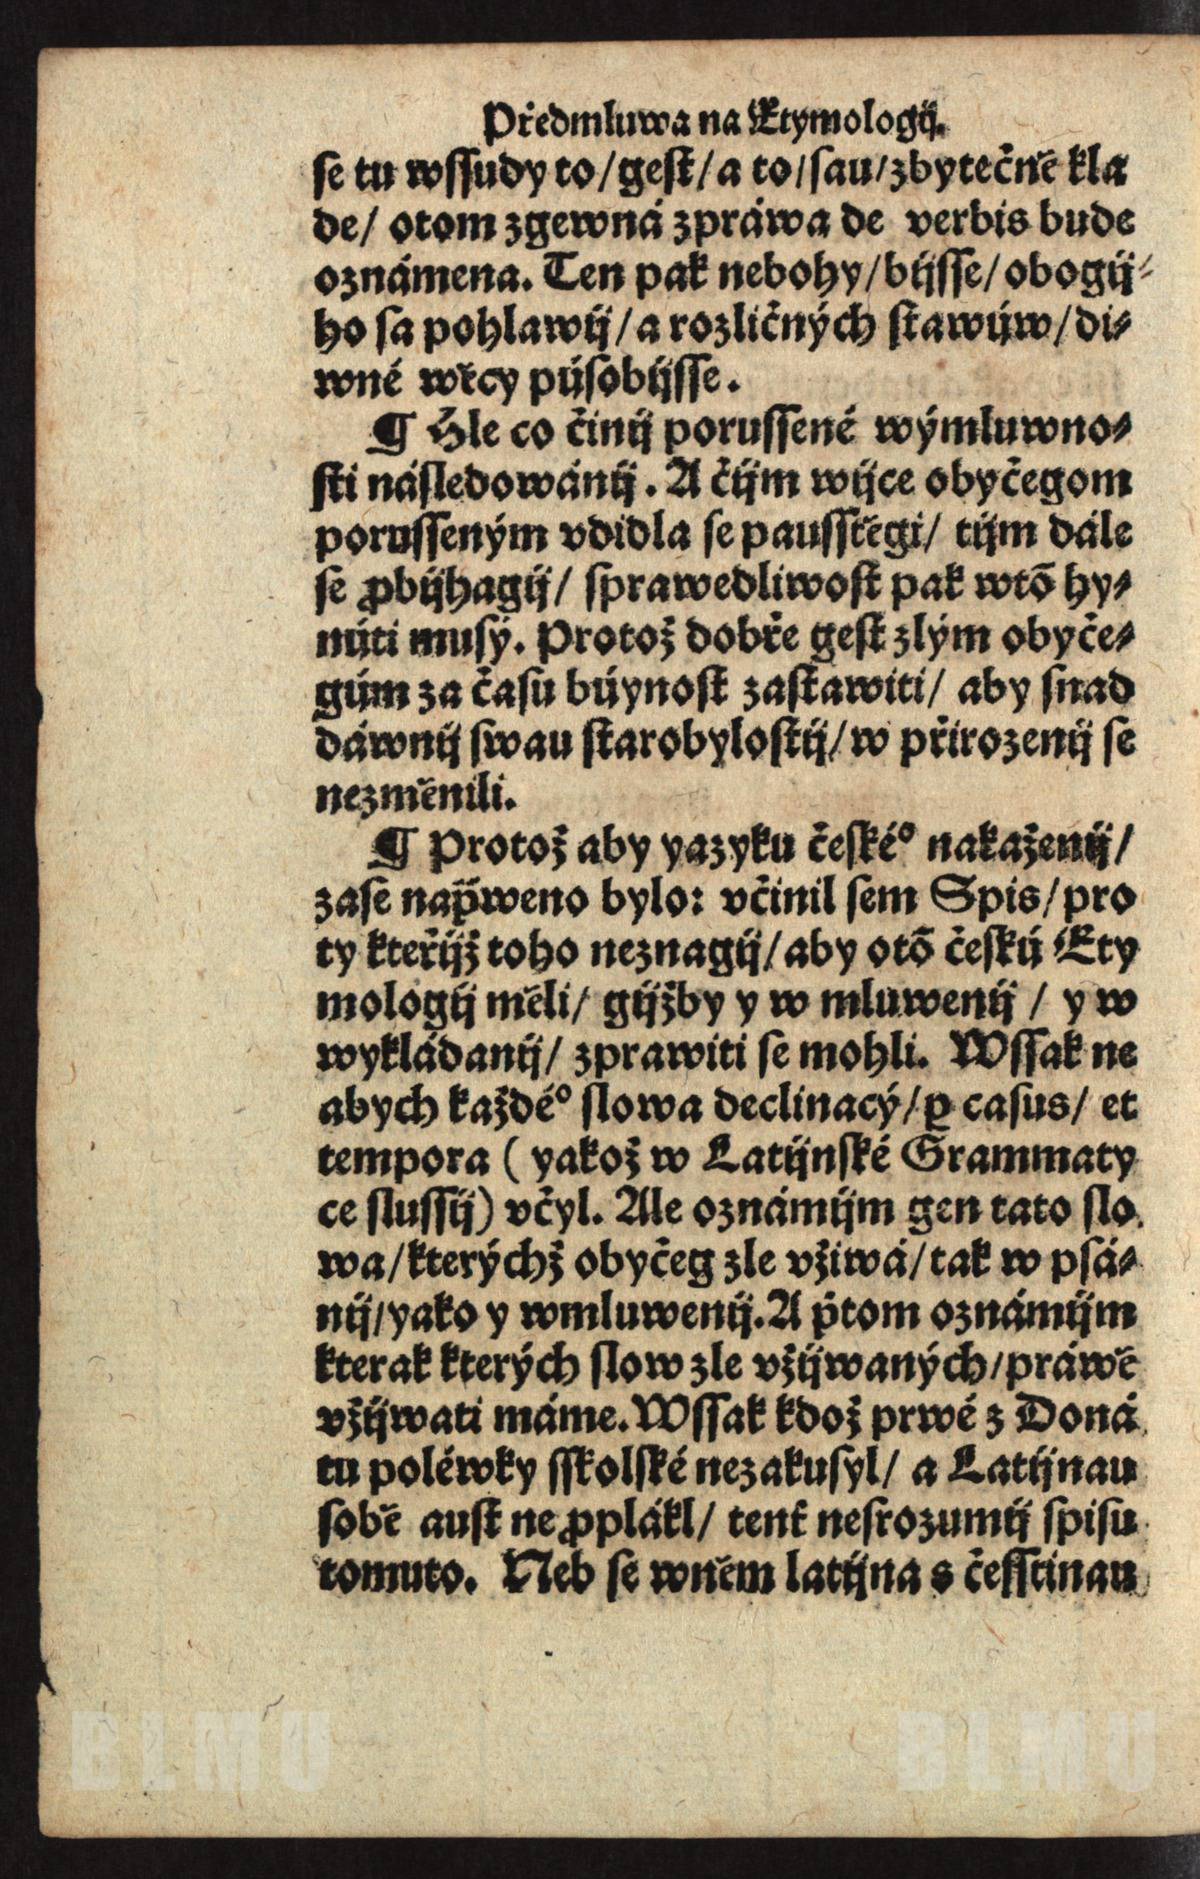 Předmluwa na Etymologij.
se tu wſſudy to/geſt/a to/ſau/zbytečně kla
de/ otom zgewná zpráwa de verbis bude
oznámena. Ten pak nebohy/bijſſe/obogij⸗
ho ſa pohlawij/a rozličných ſtawúw/di⸗
wné wěcy púſobijſſe.
¶ Hle co činij poruſſené wýmluwno⸗
ſti náſledowánij. A čijm wijce obyčegom
poruſſeným vdidla ſe pauſſtěgi/ tijm dále
ſe ꝓbijhagij/ ſprawedliwoſt pak wtō hy⸗
núti muſý. Protož dobře geſt zlým obyče⸗
gúm za čaſu búynoſt zaſtawiti/ aby ſnad
dáwnij ſwau ſtarobyloſtij/w přirozenij ſe
nezměnili.
¶ Protož aby yazyku čeſkéº nakaženij/
zaſe nap̃weno bylo: včinil ſem Spis/pro
ty kteřijž toho neznagij/aby otō čeſkú Ety
mologij měli/ gijžby y w mluwenij / y w
wykládanij/ zprawiti ſe mohli. Wſſak ne
abych každéº ſlowa declinacý/ꝑ caſus/ et
tempora ( yakož w Latijnſké Grammaty
ce ſluſſij) včyl. Ale oznámijm gen tato ſlo
wa/kterýchž obyčeg zle vžiwá/tak w pſá⸗
nij/yako y wmluwenij. A p̃tom oznámijm
kterak kterých ſlow zle vžijwaných/práwě
vžijwati máme. Wſſak kdož prwé z Doná
tu poléwky ſſkolſké nezakuſyl/ a Latijnau
ſobě auſt neꝓplákl/ tenť neſrozumij ſpiſu
tomuto. Neb ſe wněm latijna s čeſſtinau